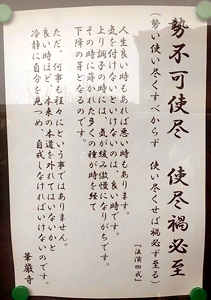 勢不可使尽　使尽禍必至
（勢い使い尽くすべからず　使い尽くせば禍必ず至る）
「法演四戒」
人生良い時もあれば悪い時もあります。
気を付けないといけないのは、良い時です。
上り調子の時には、気が緩み傲慢になりがちです。
その時に蒔かれた多くの種が時を経て
下降の芽となるのです。
ただ、何事も程々にという事ではありません。
良い時ほど、本来の本道を外れてはいないかと
冷静に自分を見つめ、自戒しなければいけないのです。
華厳寺